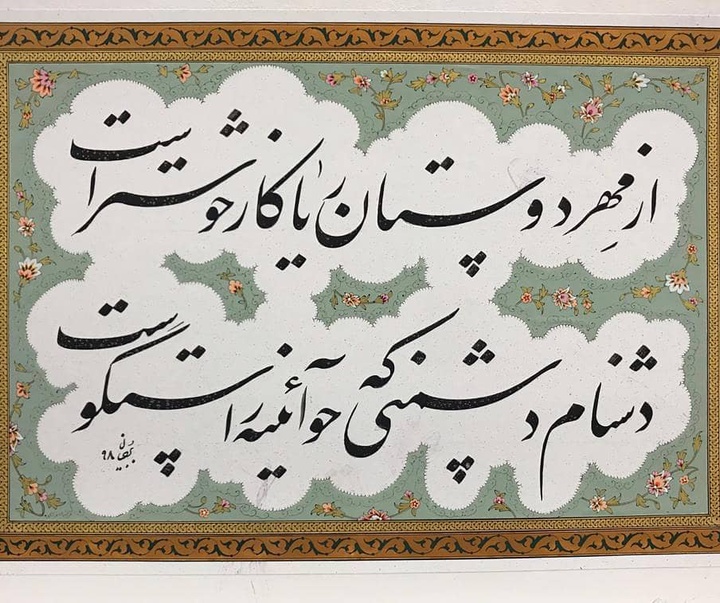 از مِهرِ دوستانِ ریاکار خوشتر است
دشنام دشمنی که چو آئینه راستگوست
۹۸